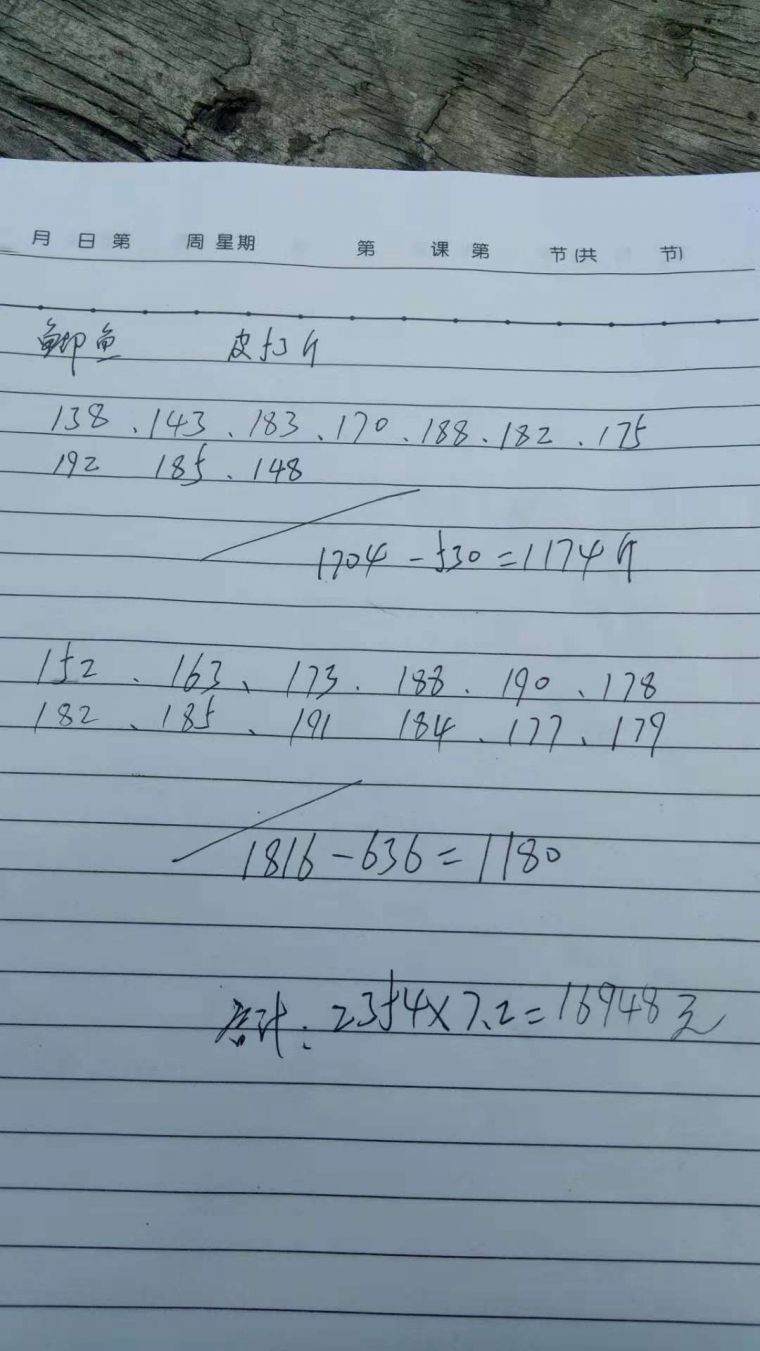 月 日 第 周 星期 第 课 第 节(共 节)
鲫鱼 皮53斤
138、143、183、170、188、182、175
192 185、148
1704-530=1174斤
152、163、173、188、190、178
182、185、191 184、177、179
1816-636=1180
合计:2354×7.2=16948元